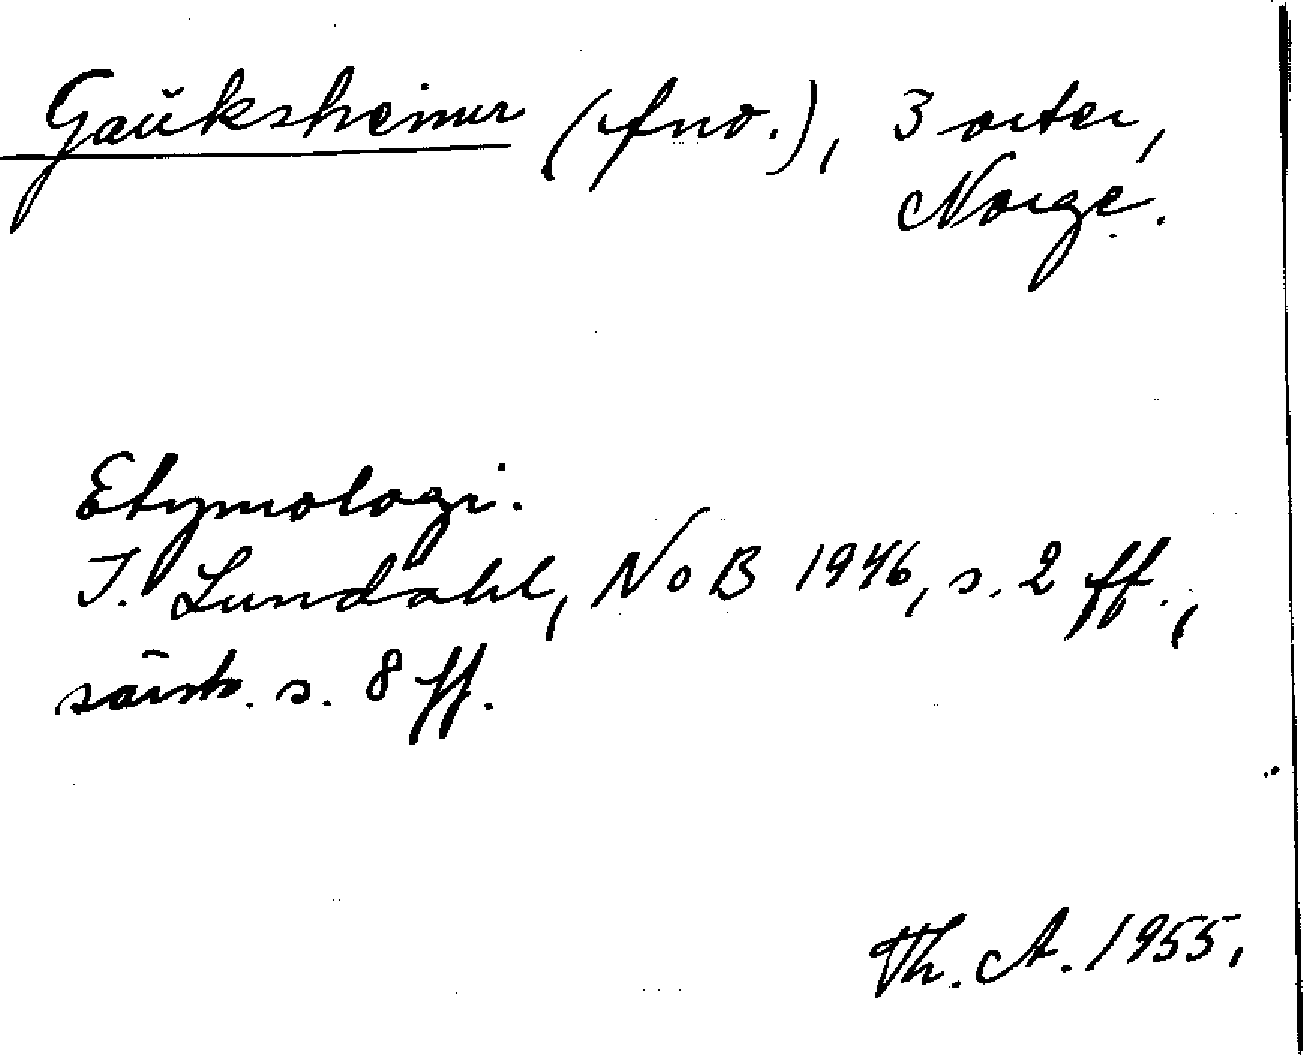 Gauksheimr (fno.), 3 orter,
Norge.
Etymologi.
I. Lundahl, NoB 1946, s. 2 ff.,
särsk. s. 8 ff.
Th. A. 1955.